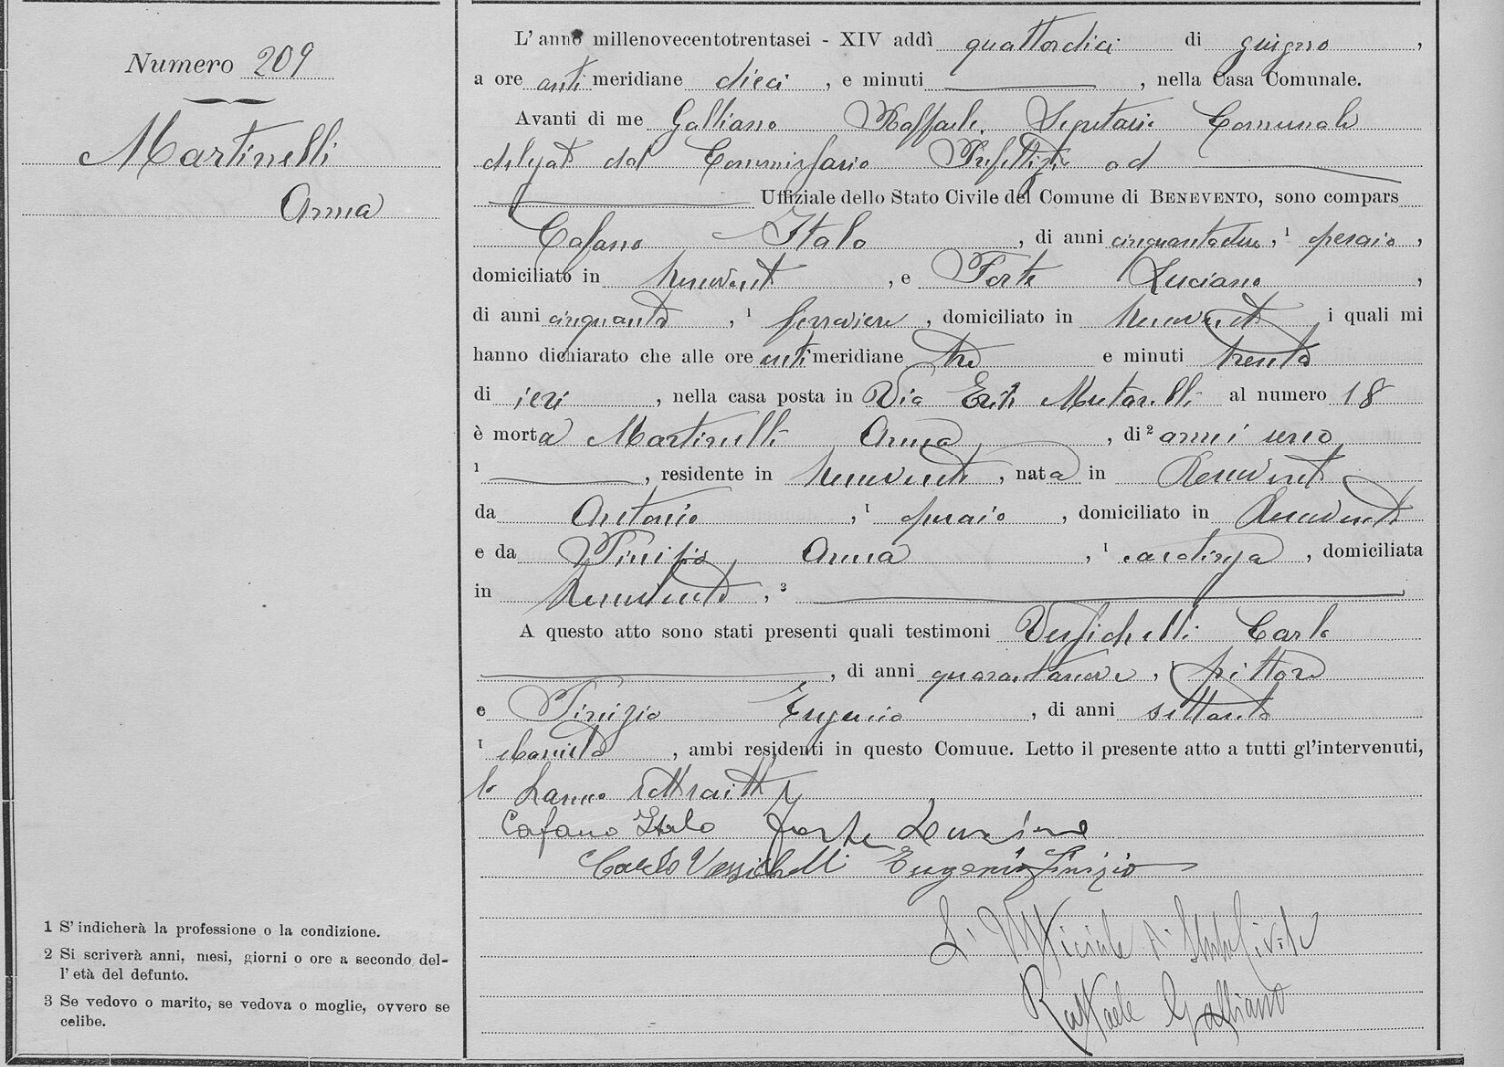 Numero 209
Martinelli
Anna
1 S' indicherà la professione o la condizione.
2 Si scriverà anni, mesi, giorni o ore a secondo del-
l' età del defunto.
3 Se vedovo o marito, se vedova o moglie, ovvero se
celibe.
L' anno millenovecentotrentasei - XIV addì quattordici di giugno,
a ore antimeridiane dieci, e minuti, nella Casa Comunale.
Avanti di me Galliano Raffaele, Segretario Comunale
delegato dal Commissario Prefettizio ad
Uffiziale dello Stato Civile del Comune di BENEVENTO, sono compars
Cafano Italo, di anni cinquantadue, 1 operaio,
domiciliato in Benevento, e Forte Luciano,
di anni cinquanta, 1 ferroviere, domiciliato in Benevento i quali mi
hanno dichiarato che alle ore antimeridiane tre e minuti trenta
di ieri, nella casa posta in Via Mutarelli al numero 18
è morta Martinelli Anna, di 2 anni uno
1, residente in Benevento, nata in Benevento
da Antonio, 1 operaio, domiciliato in Benevento
e da Tinizio Anna, 1 casalinga, domiciliata
in Benevento, 3
A questo atto sono stati presenti quali testimoni Vessichelli Carlo
, di anni quarantanove, 1 pittore
e Tinizio Eugenio, di anni settanta
1 ebanista, ambi residenti in questo Comune. Letto il presente atto a tutti gl'intervenuti,
lo hanno sottoscritto
Cafano Italo Forte Luciano
Carlo Vessichelli Eugenio Tinizio
L' Ufficiale di Stato Civile
Raffaele Galliano